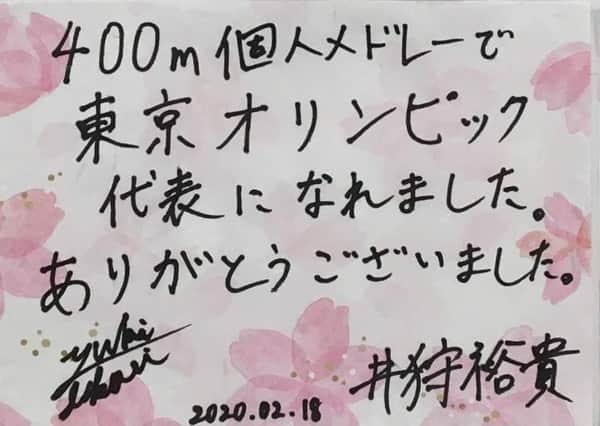 400m個人メドレーで
東京オリンピック
代表になれました。
ありがとうございました。
yuki
Ikari
井狩裕貴
2020.02.18